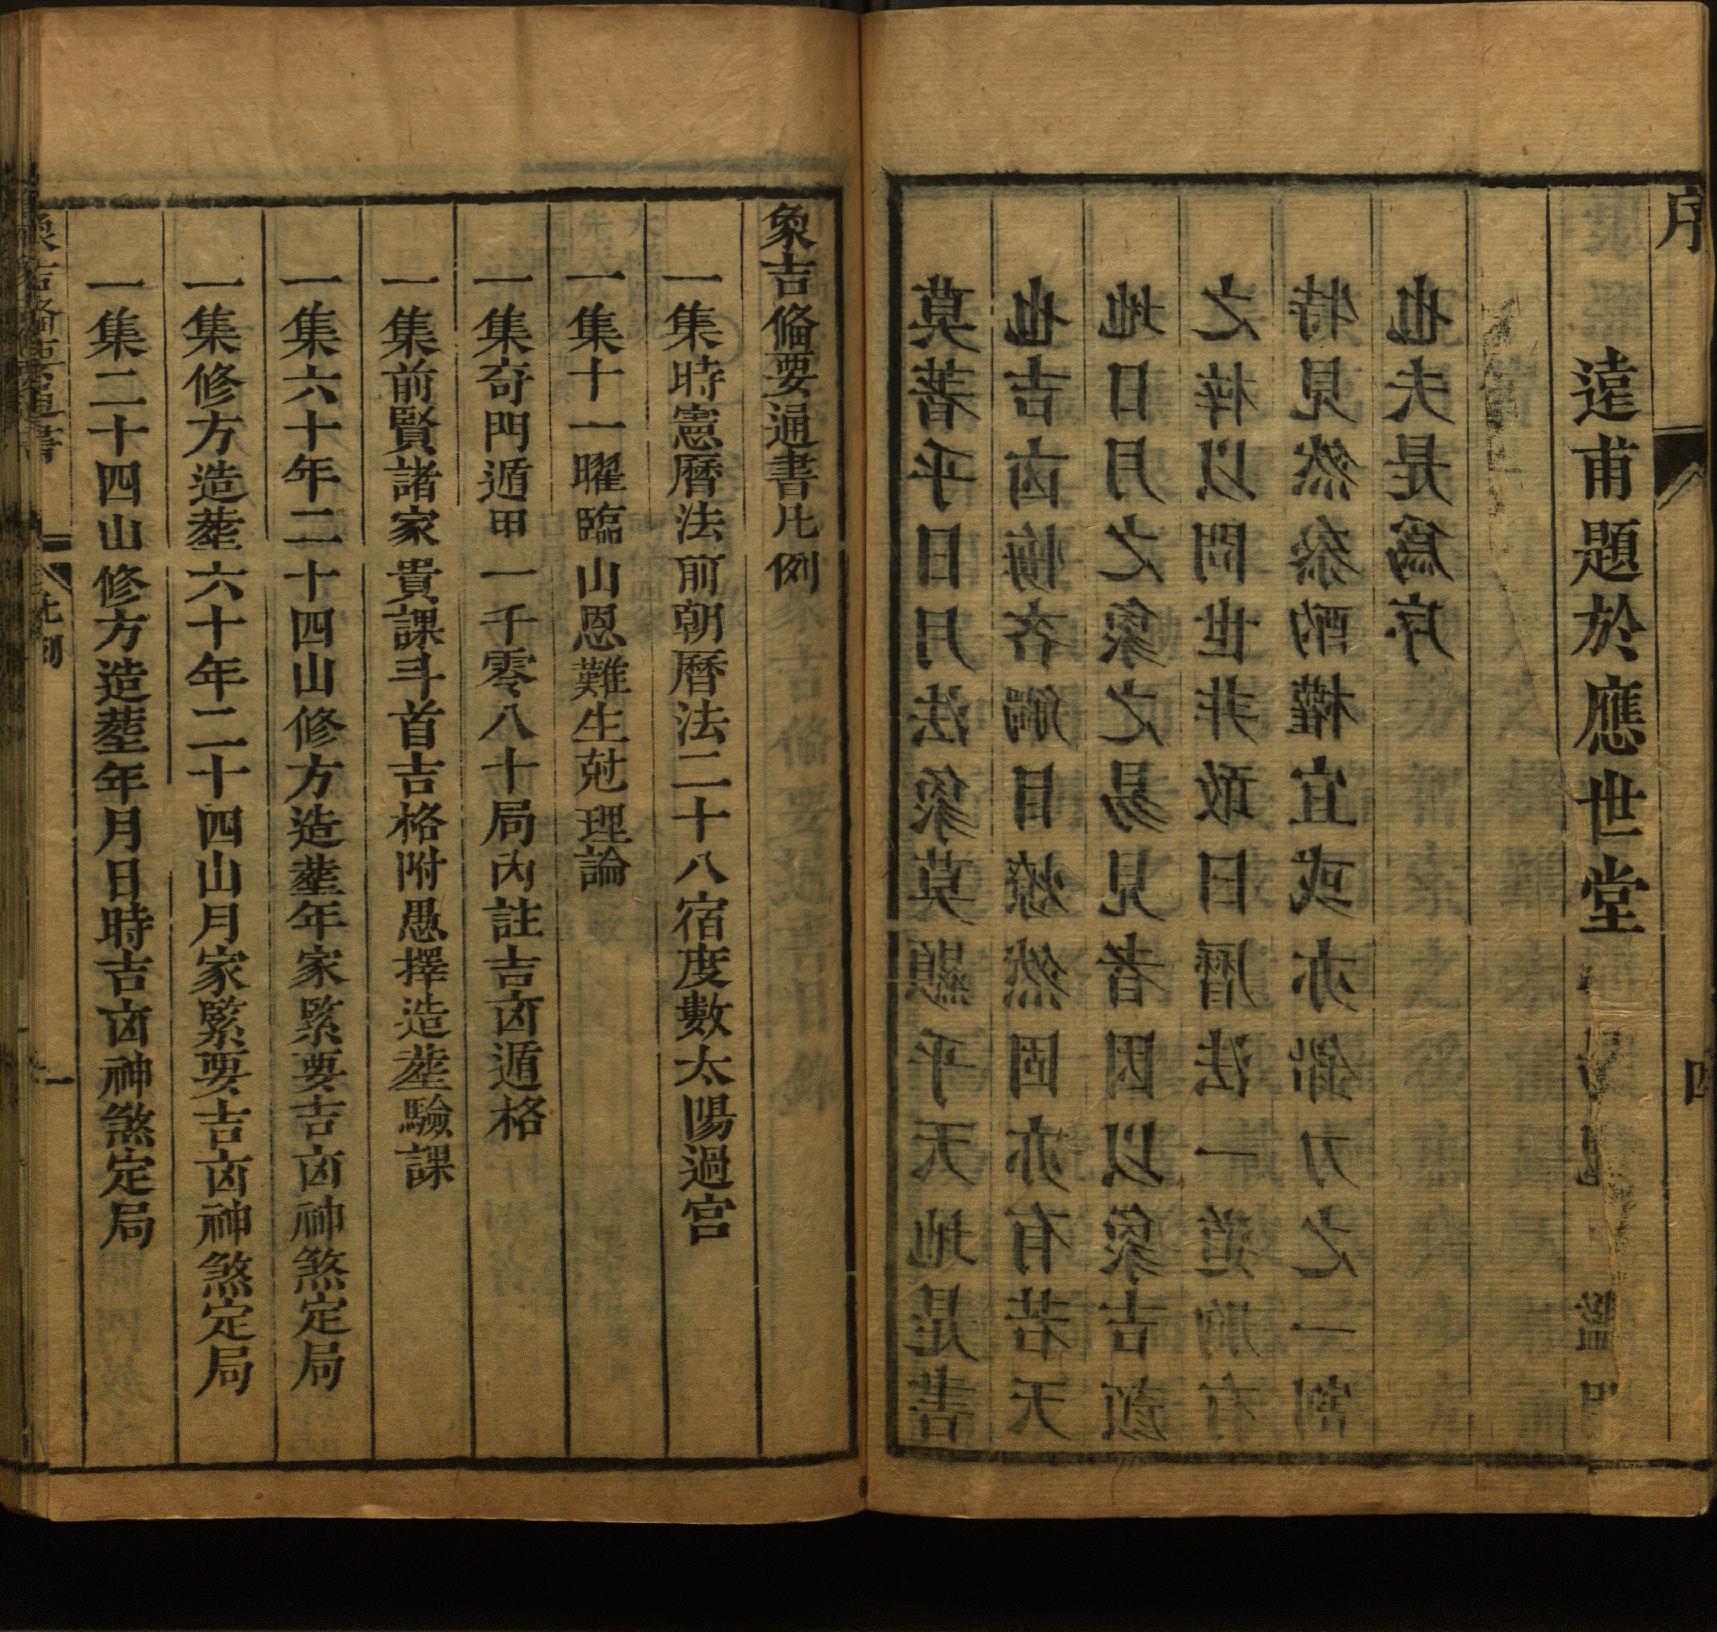 序
四
莫著乎日月法象莫顯乎天地是書
也吉凶悔吝觸目燎然固亦有若天
地日月之象之易見者因以象吉顏
之梓以問世非敢曰曆法一道
特見然叅酌權宜或亦鉛刀之一割
也夫是爲序
遠甫題於應世堂
象吉俻要通書凡例
一集時憲曆法前朝曆法二十八宿度數太陽過宮
一集十一曜臨山恩難生尅理論
一集奇門遁甲一千零八十局內註吉凶遁格
一集前賢諸家貴課斗首吉格附愚擇造塟驗課
一集六十年二十四山修方造塟年家緊要吉凶神煞定局
一集修方造塟六十年二十四山月家緊要吉凶神煞定局
一集二十四山修方造塟年月日時吉凶神煞定局
象吉俻要通書
凡例
一